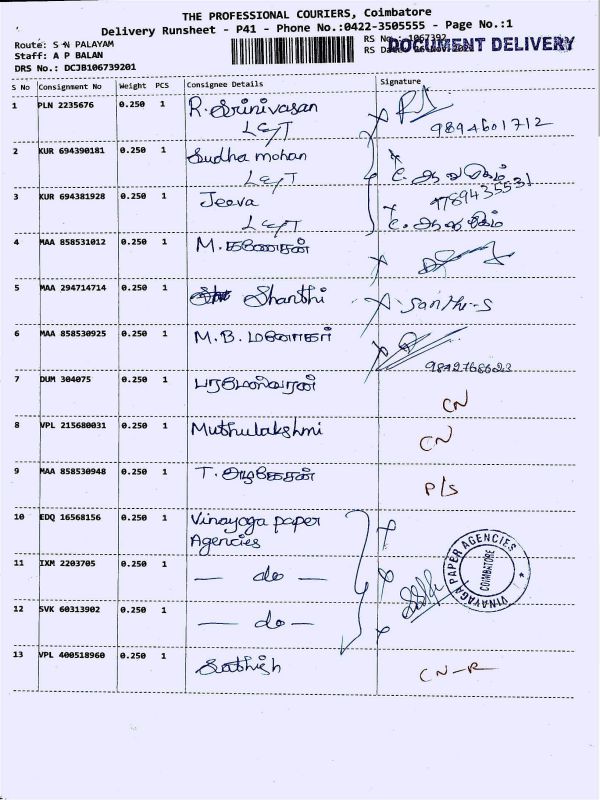 THE PROFESSIONAL COURIERS, Coimbatore
Delivery Runsheet - P41 - Phone No.:0422-3505555 - Page No.:1
Route: S N PALAYAM
Staff: A P BALAN
DRS No.: DCJB106739201
RS No.: 1067392
RS Date:
DOCUMENT DELIVERY
S No Consignment No Weight PCS Consignee Details Signature
1 PLN 2235676 0.250 1 R. Srinivasan
L&T
9894601712
2 KUR 694390181 0.250 1 Sudha mohan
L&T
3 KUR 694381928 0.250 1 Jeeva
L&T
4 MAA 858531012 0.250 1 M. கணேசன்
5 MAA 294714714 0.250 1 Shanthi Santhi-S
6 MAA 858530925 0.250 1 M. B. மனோகர்
7 DUM 304075 0.250 1 பரமேஸ்வரன் CN
8 VPL 215680031 0.250 1 Muthulakshmi CN
9 MAA 858530948 0.250 1 T. அழகேசன் P/S
10 EDQ 16568156 0.250 1 Vinayoga paper
Agencies
11 IXM 2203705 0.250 1 — do —
12 SVK 60313902 0.250 1 — do —
VINAYAGA PAPER AGENCIES
COIMBATORE
13 VPL 400518960 0.250 1 Sathish CN-R